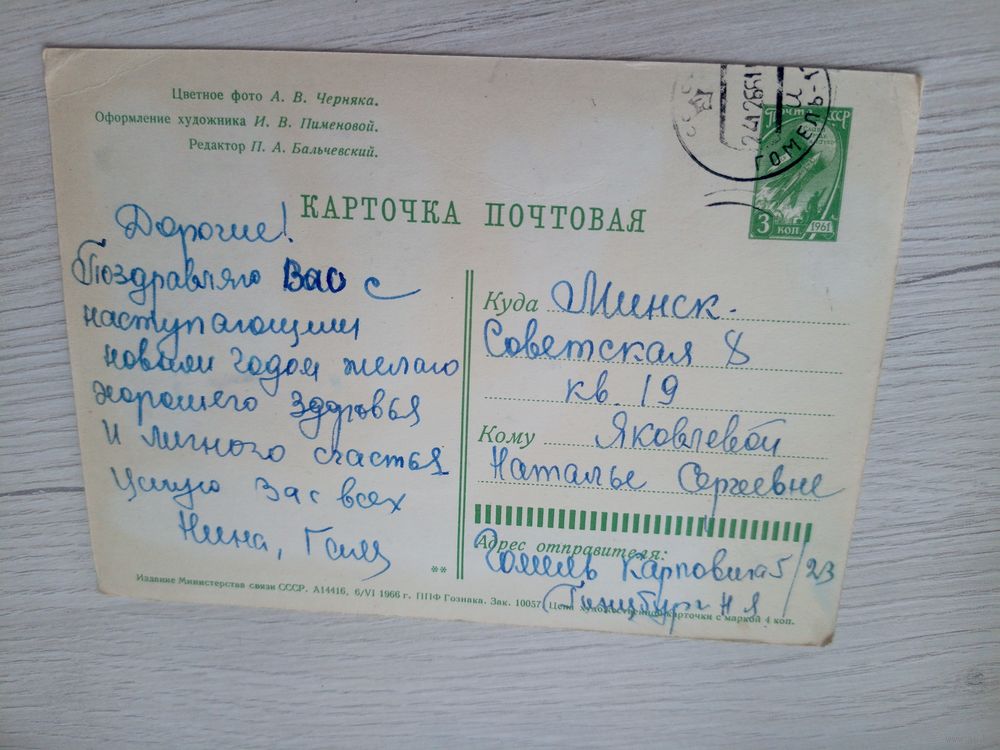 Цветное фото А. В. Черняка.
Оформление художника И. В. Пименовой.
Редактор П. А. Бальчевский.
КАРТОЧКА ПОЧТОВАЯ
ГОМЕЛЬ-1
Почта СССР
3 коп. 1961
Дорогие!
Поздравляю Вас с
наступающим
новым годом желаю
хорошего здоровья
и личного счастья
Целую Вас всех
Нина,
Куда Минск.
Советская 8
кв. 19
Кому Яковлевой
Наталье Сергеевне
Адрес отправителя:
Гомель Карповича 5/23
Гинцбург Н Я
**
Издание Министерства связи СССР. А14416. 6/VI 1966 г. ППФ Гознака. Зак. 10057. Цена художественной карточки с маркой 4 коп.